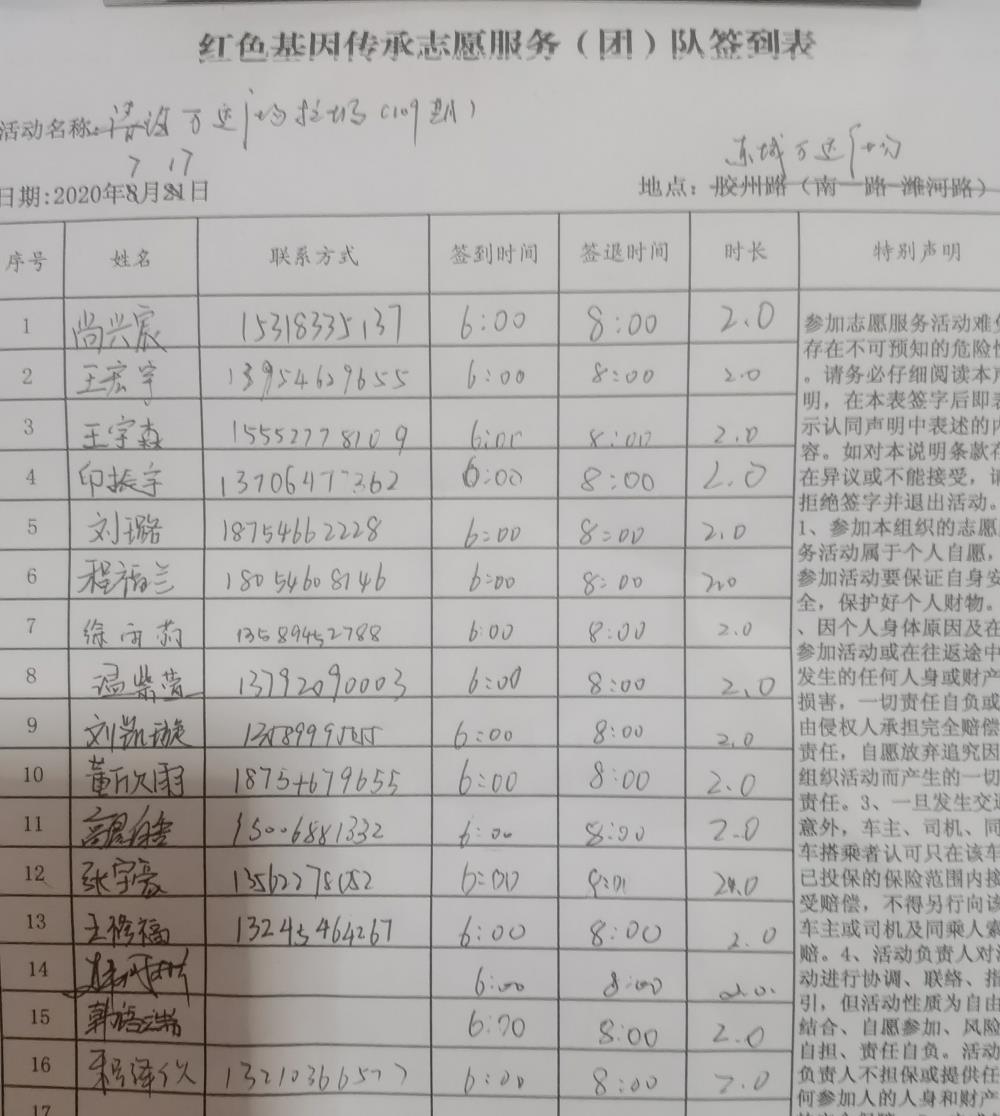 红色基因传承志愿服务（团）队签到表
活动名称: 清波万达广场拉场（109期）
7 17
东城万达广场
日期:2020年8月21日
地点：胶州路（南一路-潍河路）
序号 姓名 联系方式 签到时间 签退时间 时长 特别声明
1 尚兴宸 15318335137 6:00 8:00 2.0
2 王宏宇 13954629655 6:00 8:00 2.0
3 王宇森 15552778109 6:00 8:00 2.0
4 印振宇 13706477362 6:00 8:00 2.0
5 刘璐 18754662228 6:00 8:00 2.0
6 程福兰 18054608146 6:00 8:00 2.0
7 徐 莉 13589452788 6:00 8:00 2.0
8 温紫萱 13792090003 6:00 8:00 2.0
9 刘凯璇 13589995055 6:00 8:00 2.0
10 董欣雨 18754679655 6:00 8:00 2.0
11 15006881332 6:00 8:00 2.0
12 张宇豪 13562278052 6:00 8:00 2.0
13 王福 13245464267 6:00 8:00 2.0
14 6:00 8:00 2.0
15 韩语 6:00 8:00 2.0
16 程泽 1321036657 6:00 8:00 2.0
17
参加志愿服务活动难免
存在不可预知的危险性
。请务必仔细阅读本声
明，在本表签字后即表
示认同声明中表述的内
容。如对本说明条款存
在异议或不能接受，请
拒绝签字并退出活动。
1、参加本组织的志愿服
务活动属于个人自愿，
参加活动要保证自身安
全，保护好个人财物。
、因个人身体原因及在
参加活动或在往返途中
发生的任何人身或财产
损害，一切责任自负或
由侵权人承担完全赔偿
责任，自愿放弃追究因
组织活动而产生的一切
责任。3、一旦发生交通
意外，车主、司机、同
车搭乘者认可只在该车
已投保的保险范围内接
受赔偿，不得另行向该
车主或司机及同乘人索
赔。4、活动负责人对活
动进行协调、联络、指
引，但活动性质为自由
结合、自愿参加、风险
自担、责任自负。活动
负责人不担保或提供任
何参加人的人身和财产